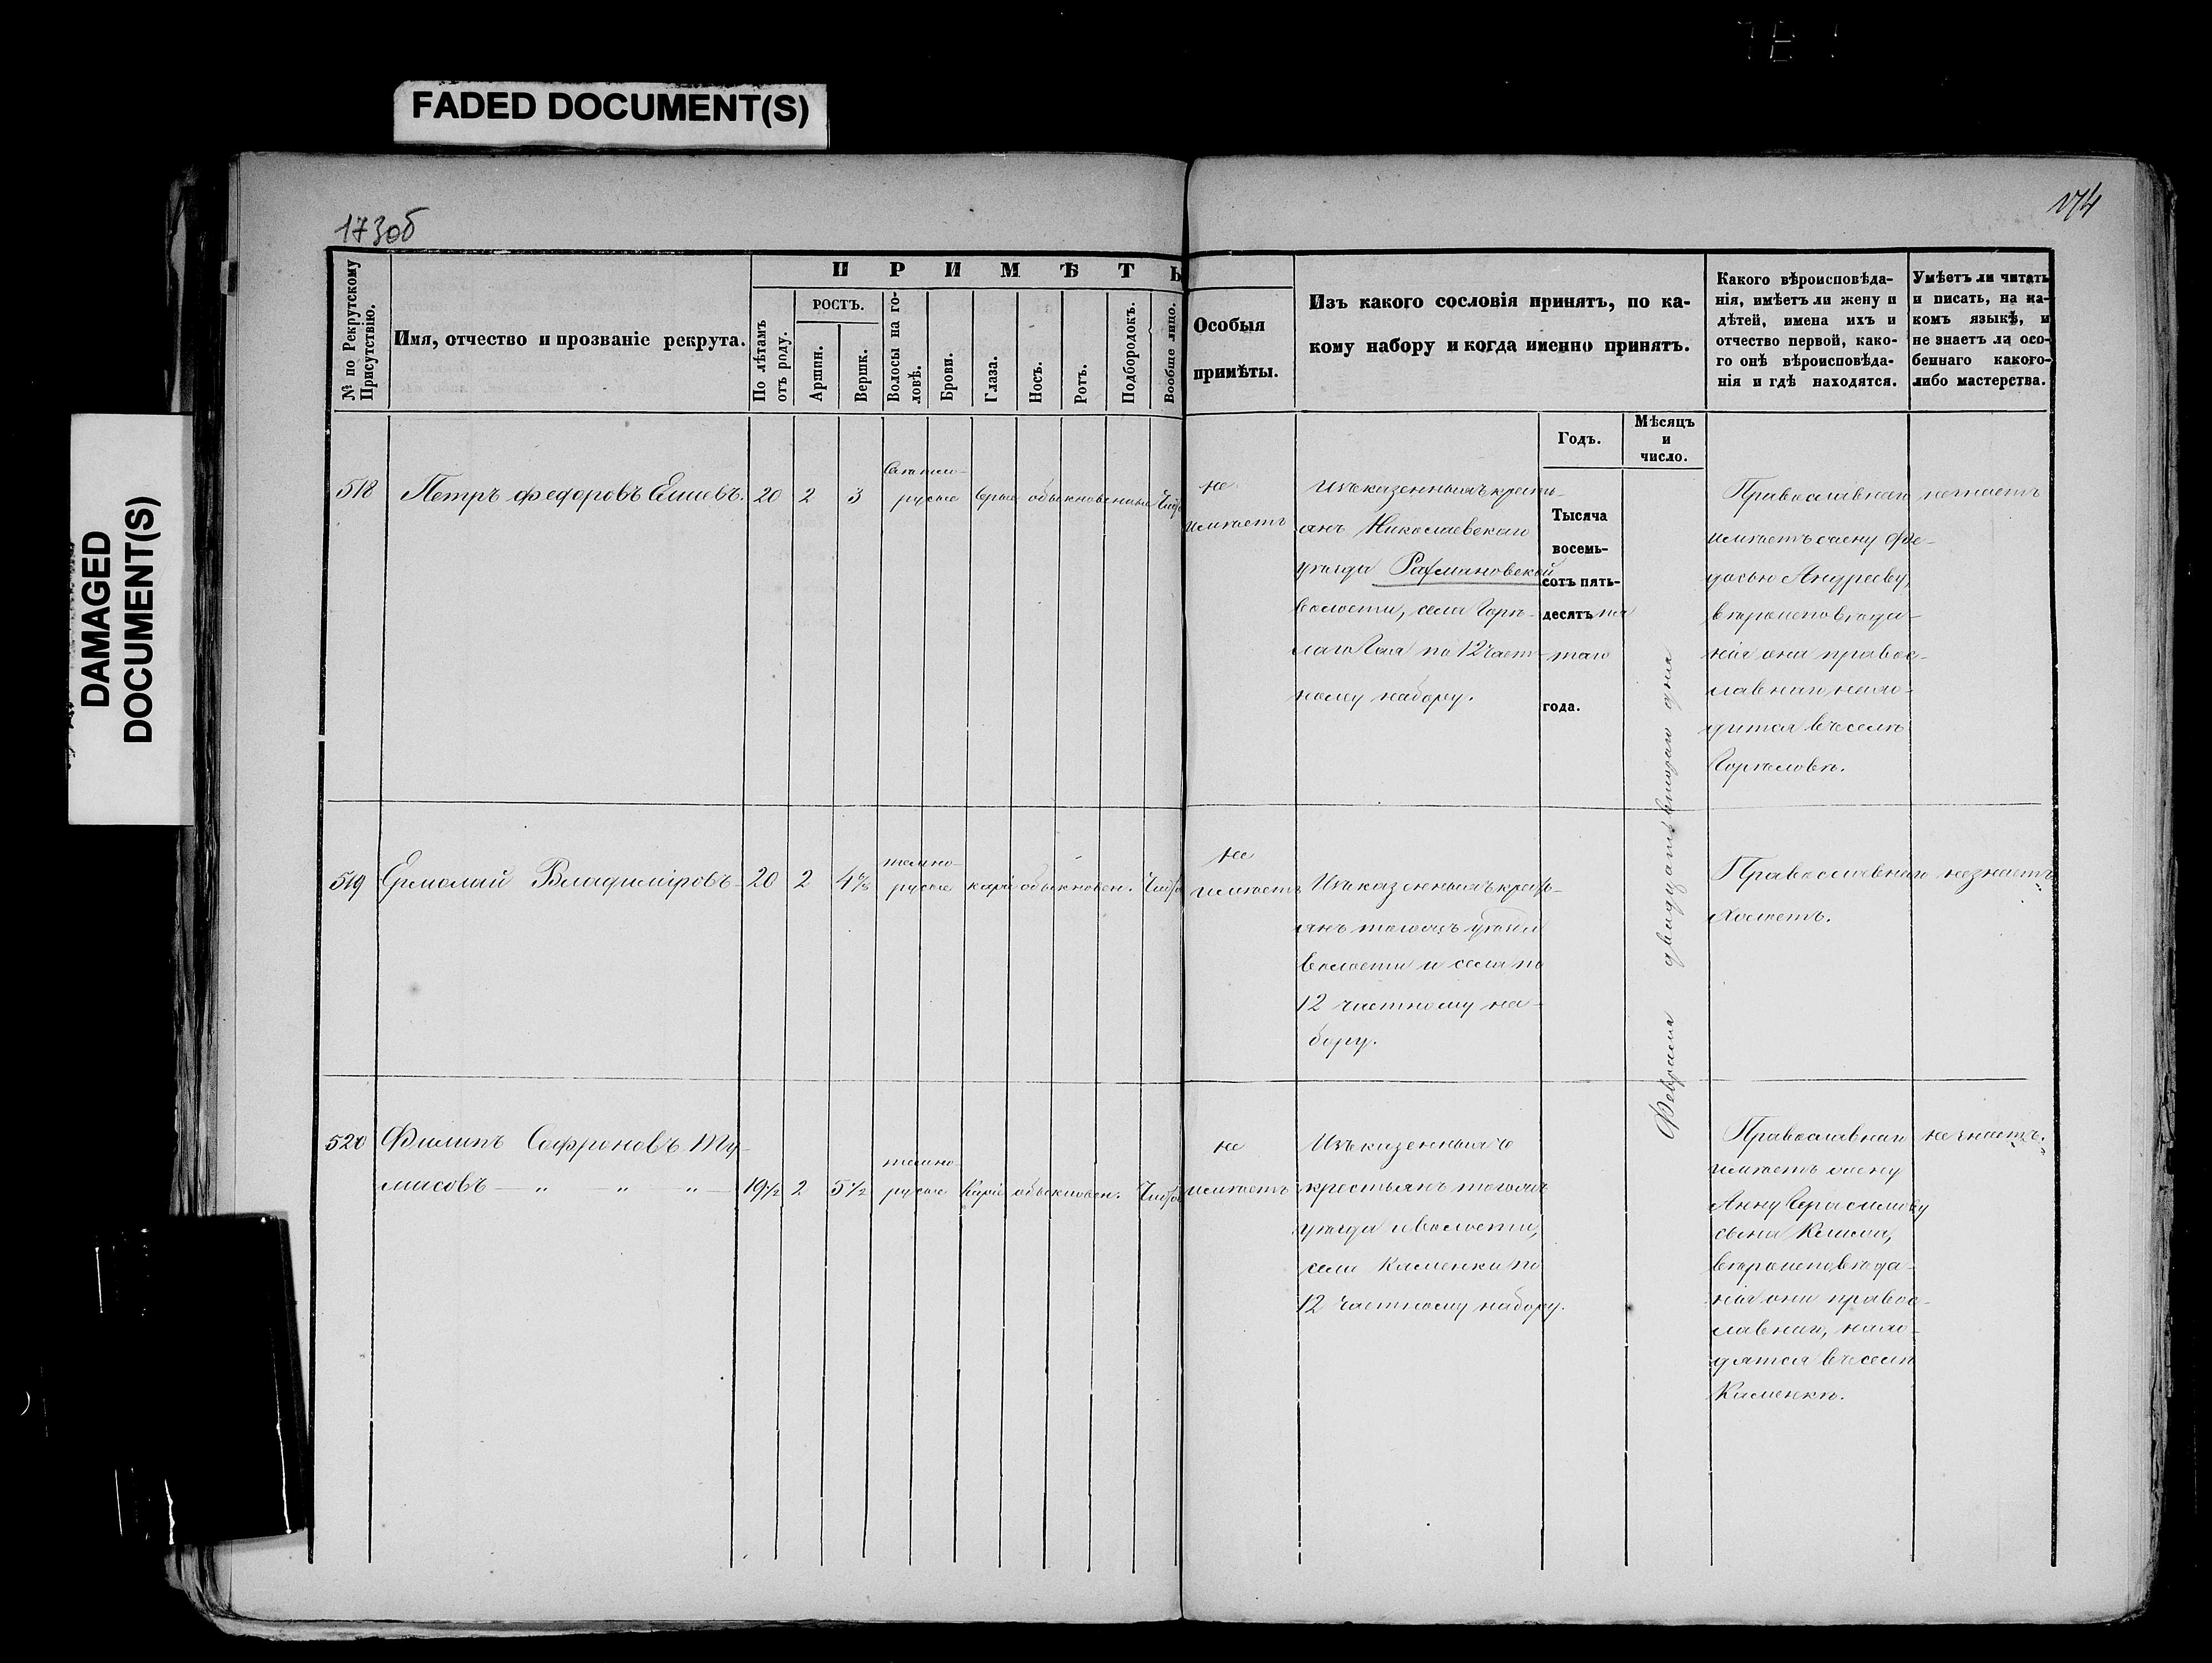 FADED DOCUMENT(S)
DAMAGED
DOCUMENT(S)
173об
174
№ по Рекрутскому
Присутствію.
Имя, отчество и прозваніе рекрута.
ПРИМѢТЫ
По лѣтамъ
отъ роду.
РОСТЪ.
Аршин.
Вершк.
Волосы на го-
ловѣ.
Брови.
Глаза.
Носъ.
Ротъ.
Подбородокъ.
Вообще лицо.
Особыя
примѣты.
Изъ какого сословія принятъ, по ка-
кому набору и когда именно принятъ.
Годъ.
Мѣсяцъ
и
число.
Какого вѣроисповѣда-
нія, имѣетъ ли жену и
дѣтей, имена ихъ и
отчество первой, како-
го онѣ вѣроисповѣда-
нія и гдѣ находятся.
Умѣетъ ли читать
и писать, на ка-
комъ языкѣ, и
не знаетъ ли осо-
беннаго какого-
либо мастерства.
518
Петръ Федоровъ
20
2
3
Свѣтло-
русые
сѣрые
обыкновенные
Чист
не
имѣетъ
Изъ казенныхъ кресть-
янъ Николаевскаго
уѣзда Рахмановской
волости, села Горѣ-
лаго Гая по 12 част-
ному набору.
Тысяча
восемь-
сотъ пять-
десятъ пя
таго
года.
Февраля двадцать втораго дня
Православнаго
имѣетъ жену Фе-
досью Андрееву,
вѣроисповѣда-
нія они правос-
лавнаго нахо-
дится въ селѣ
Горѣловѣ.
не знаетъ
519
Ермолай Владиміровъ
20
2
4
темно-
русые
каріе
обыкновен.
Чист
не
имѣетъ
Изъ казенныхъ кресть-
янъ тогожъ уѣзда
волости и села по
12 частному на-
бору.
Православнаго
Холостъ.
незнаетъ
520
Филипъ Софроновъ Ту-
масовъ — " — " — " —
19½
2
5½
темно-
русые
Каріе
обыкновен.
Чист
не
имѣетъ
Изъ казенныхъ
крестьянъ тогожъ
уѣзда и волости,
села Каменки по
12 частному набору.
Православнаго
имѣетъ жену
Анну Герасимову
сына Клима,
вѣроисповѣда-
нія они правос-
лавнаго, нахо-
дятся въ селѣ
Каменкѣ.
не знаетъ.